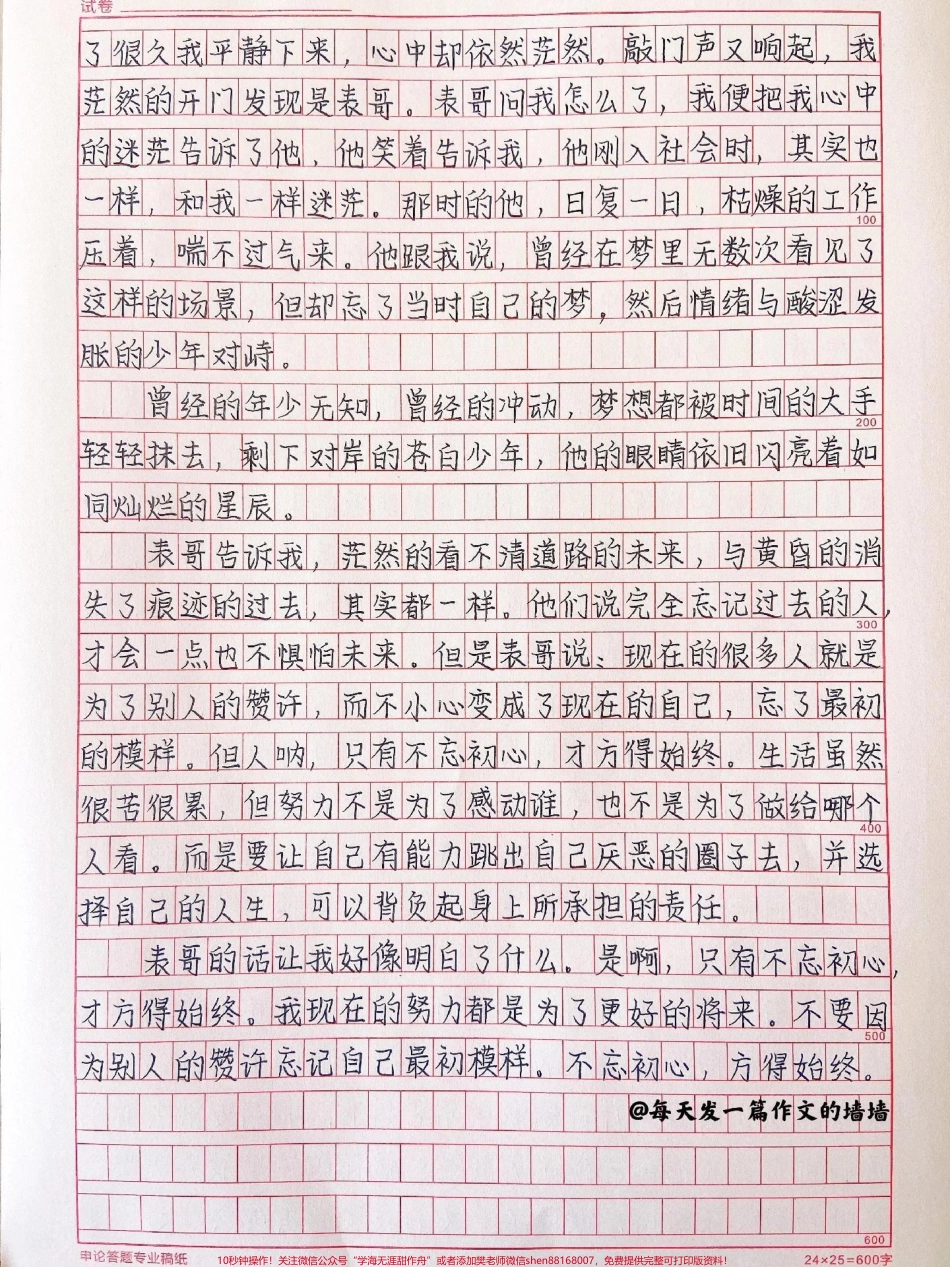 试卷
了很久我平静下来，心中却依然茫然。敲门声又响起，我
茫然的开门发现是表哥。表哥问我怎么了，我便把我心中
的迷茫告诉了他，他笑着告诉我，他刚入社会时，其实也
一样，和我一样迷茫。那时的他，日复一日，枯燥的工作
100
压着，喘不过气来。他跟我说，曾经在梦里无数次看见了
这样的场景，但却忘了当时自己的梦，然后情绪与酸涩发
胀的少年对峙。
曾经的年少无知，曾经的冲动，梦想都被时间的大手
200
轻轻抹去，剩下对岸的苍白少年，他的眼睛依旧闪亮着如
同灿烂的星辰。
表哥告诉我，茫然的看不清道路的未来，与黄昏的消
失了痕迹的过去，其实都一样。他们说完全忘记过去的人，
300
才会一点也不惧怕未来。但是表哥说：现在的很多人就是
为了别人的赞许，而不小心变成了现在的自己，忘了最初
的模样。但人呐，只有不忘初心，才方得始终。生活虽然
很苦很累，但努力不是为了感动谁，也不是为了做给哪个
400
人看。而是要让自己有能力跳出自己厌恶的圈子去，并选
择自己的人生，可以背负起身上所承担的责任。
表哥的话让我好像明白了什么。是啊，只有不忘初心，
才方得始终。我现在的努力都是为了更好的将来。不要因
500
为别人的赞许忘记自己最初模样。不忘初心，方得始终。
@每天发一篇作文的墙墙
600
申论答题专业稿纸
10秒钟操作！关注微信公众号“学海无涯甜作舟”或者添加樊老师微信shen88168007，免费提供完整可打印版资料！
24×25=600字